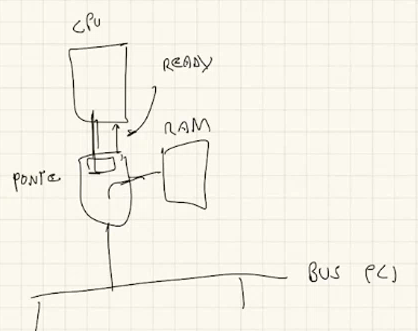 CPU
READY
RAM
PONTE
BUS PCI